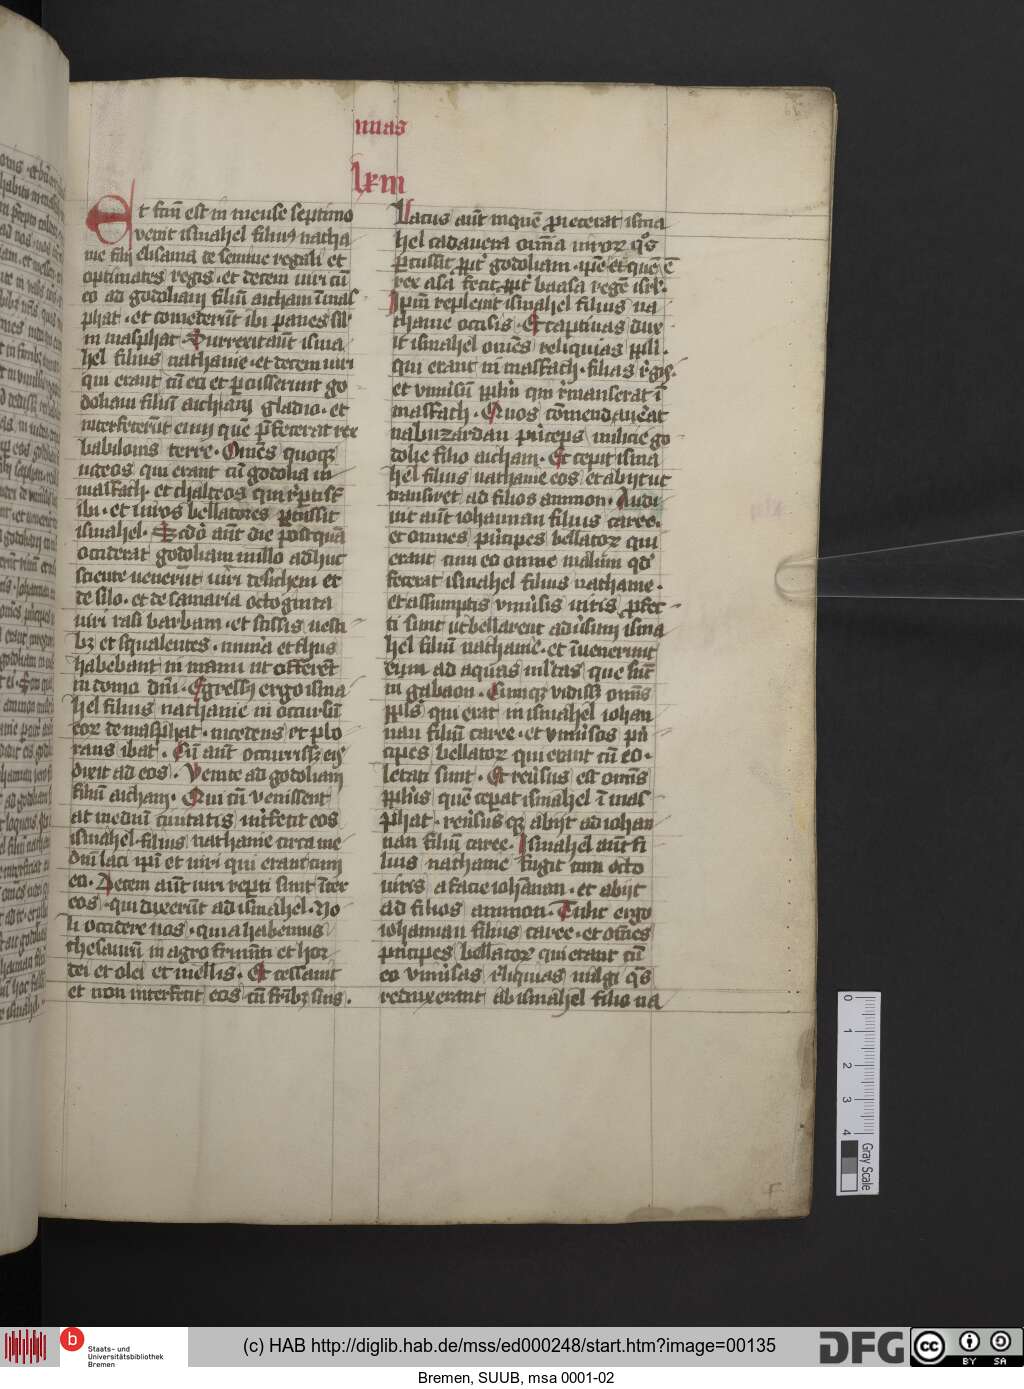 mias
lxiii
Et fcm̄ est in mense septimo
venit ismahel filiꝰ natha
nie filii elisama de semine regali et
optimates regis · et decem uiri cū
eo ad godoliam filiū aicham ī mas
phat · et comederūt ibi panes sil̕
in masphat · Surrexit aūt isma
hel filius nathanie · et decem uiri
qui erant cū eo et ꝑcusserunt go
doliam filiū aicham gladio · et
interfecerūt eum quē p̄fecerat rex
babilonis terre · Omēs quoqꝫ
iudeos qui erant cū godolia in
masfath · et chaldeos qui rep̄ti sūt
ibi · et uiros bellatores ꝑcussit
ismahel · Scdo aūt die postquā
occiderat godoliam nullo adhuc
sciente uenerūt uiri de sichem et
de silo · et de samaria octoginta
uiri rasi barbam · et scissis uesti
bꝫ et squalentes · munera et thus
habebant in manu ut offerrēt
in domo dnī · Egressus ergo isma
hel filius nathanie in occursū
eoꝝ de masphat · incedens et plo
rans ibat · Cū aūt occurrissꝫ eis
dixit ad eos · Venite ad godoliam
filiū aicham · Qui cū venissent
ad mediū ciuitatis int̄fecit eos
ismahel · filius nathanie circa me
diū laci ipe et uiri qui erant cum
eo · Decem aūt uiri rep̄ti sunt īter
eos · qui dixerūt ad ismahel · No
li occidere nos · quia habemus
thesaurū in agro frum̄ti et hor
dei et olei et mellis · Et cessauit
et non interfecit eos cū fr̄ibꝫ suis ·
Lacus aūt in quē ꝓiecerat isma
hel cadauera omīa uiroꝝ qͦs
ꝑcussit ꝓpt̄ godoliam · ipē est quē fecit
rex asa ꝓpt̄ baasa regē isrl̄ ·
Ipm̄ repleuit ismahel filius na
thanie occisis · Et captiuas dux
it ismahel omēs reliquias ppl̄i ·
qui erant in masfath · filias reḡis ·
et vniūsū ppl̄m qui r̄manserat ī
masfath · Quos cōmendauerat
nabuzardan princeps milicie go
dolie filio aicham · Et cepit isma
hel filius nathanie eos et abiit ut
transiret ad filios ammon · Audi
uit aūt iohannan filius caree ·
et omnes principes bellatoꝝ qui
erant cum eo omne malum qd̕
fecerat ismahel filius nathanie ·
et assumptis vniūsis uiris ꝓfec
ti sunt ut bellarent adūsum isma
hel filiū nathanie · et īuenerunt
eum ad aquas ml̄tas que sūt
in gabaon · Cumqꝫ vidissꝫ omīs
ppl̄s qui erat cū ismahel iohan
nan filiū caree · et vniūsos prin
cipes bellatoꝝ qui erant cū eo ·
letati sunt · Et reūsus est omīs
ppl̄us quē ceperat ismahel ī mas
phat · reūsus qꝫ abiit ad iohan
nan filiū caree · Ismahel aūt fi
lius nathanie fugit cum octo
uiris a facie iohānan · et abiit
ad filios ammon · Tulit ergo
iohannan filius caree · et omēs
principes bellatoꝝ qui erant cū
eo vniūsas reliquias uulgi qͣs
reduxerant ab ismahel filio na
0 1 2 3 4
Gray Scale
b Staats- und
Universitätsbibliothek
Bremen
(c) HAB http://diglib.hab.de/mss/ed000248/start.htm?image=00135
DFG
cc BY SA
Bremen, SUUB, msa 0001-02